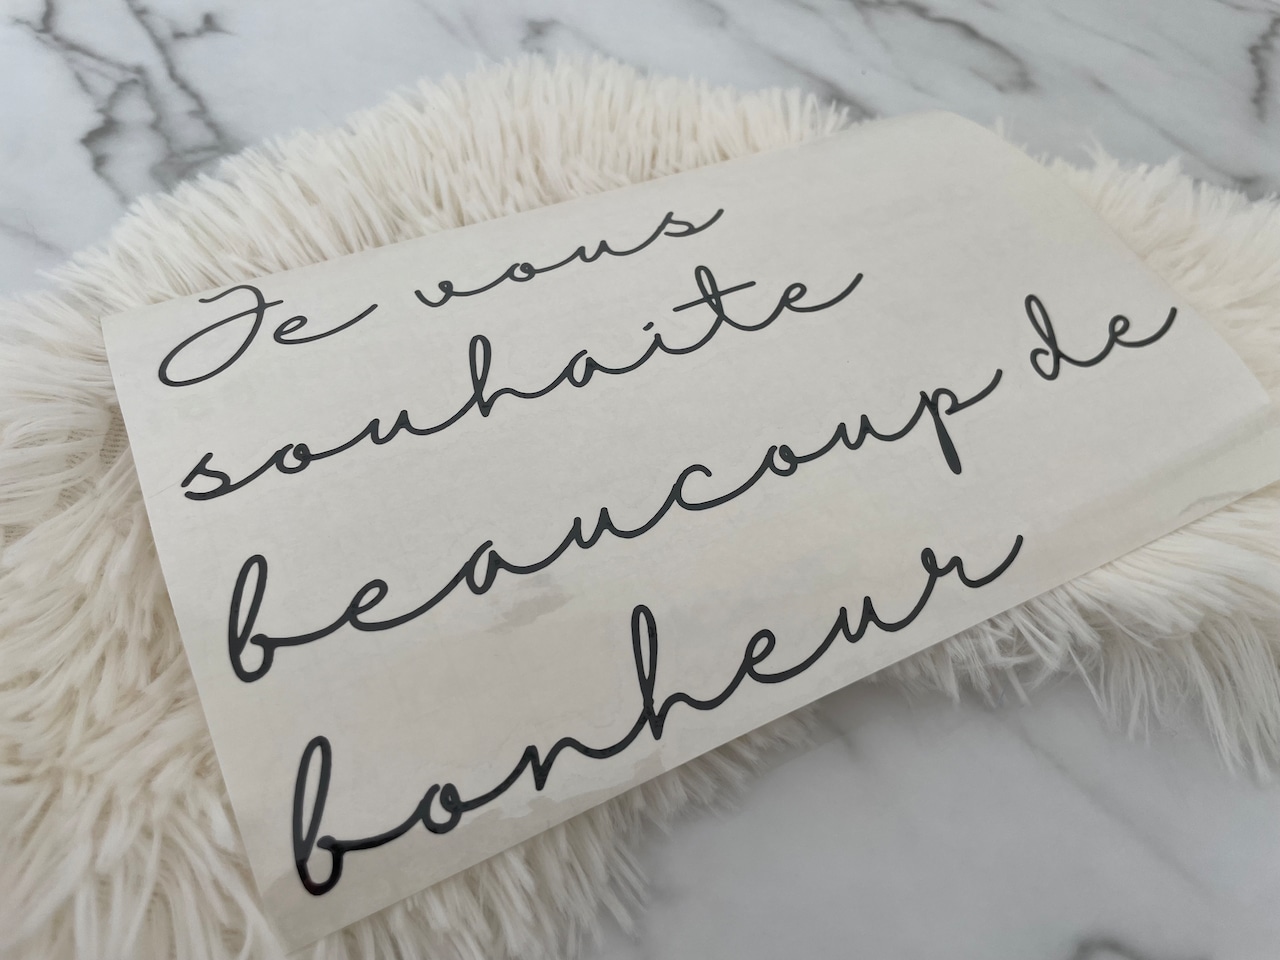 Je vous
souhaite
beaucoup de
bonheur